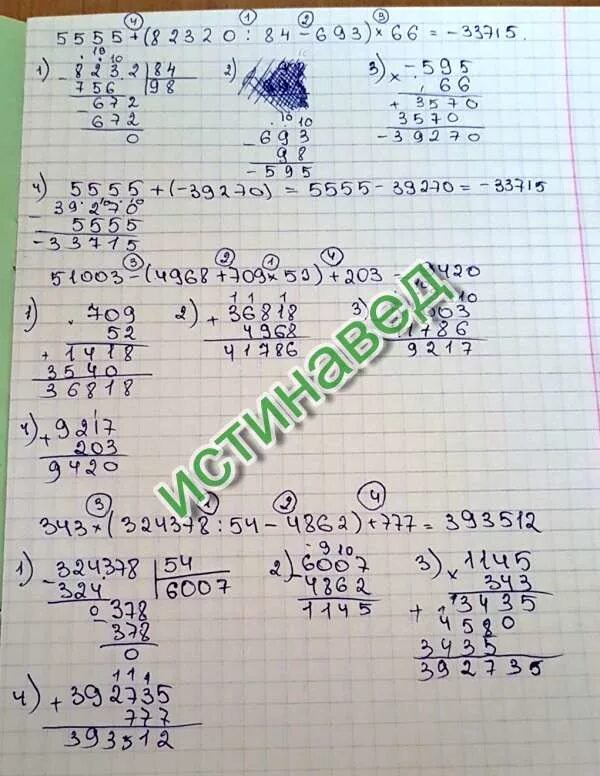 ④ ① ② ③
5555+(82320:84-693)×66=-33715.
1) 8232 | 84
756 98
672
672
0
2)
10 10
- 693
98
- 595
3) × -595
66
+ 3570
3570
- 39270
4) 5555+(-39270)=5555-39270=-33715
- 39270
5555
-33715
③ ② ① ④
51003-(4968+709×52)+203=9420
1) × 709
52
+ 1418
3540
36818
2) + 36818
4968
41786
3)
9217
4) + 9217
203
9420
③ ① ② ④
343×(324378:54-4862)+777=393512
1) - 324378 | 54
324 6007
0378
- 378
0
2) 9 10
- 6007
4862
1145
3) × 1145
343
+ 3435
4580
3435
392735
4) 1 1 1
+ 392735
777
393512
ИСТИНАВЕД